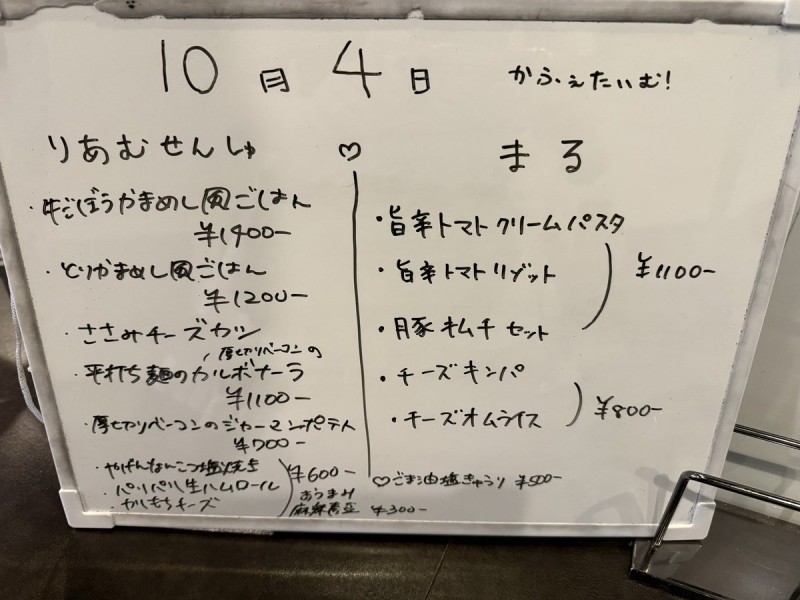 10月4日 かふぇたいむ!
りあむせんしゅ ♡
・牛ごぼうかまめし風ごはん
¥1400-
・とりかまめし風ごはん
¥1200-
・ささみチーズカツ
・厚切りベーコンの
平打ち麺のカルボナーラ
¥1100-
・厚切りベーコンのジャーマンポテト
¥700-
・やげんなんこつ塩焼き
・パリパリ生ハムロール
・かしもちチーズ
¥600-
おつまみ
¥300-
まる
・旨辛トマトクリームパスタ
・旨辛トマトリゾット
・豚キムチセット
¥1100-
・チーズキンパ
・チーズオムライス
¥800-
♡ごま油塩きゅうり ¥500-